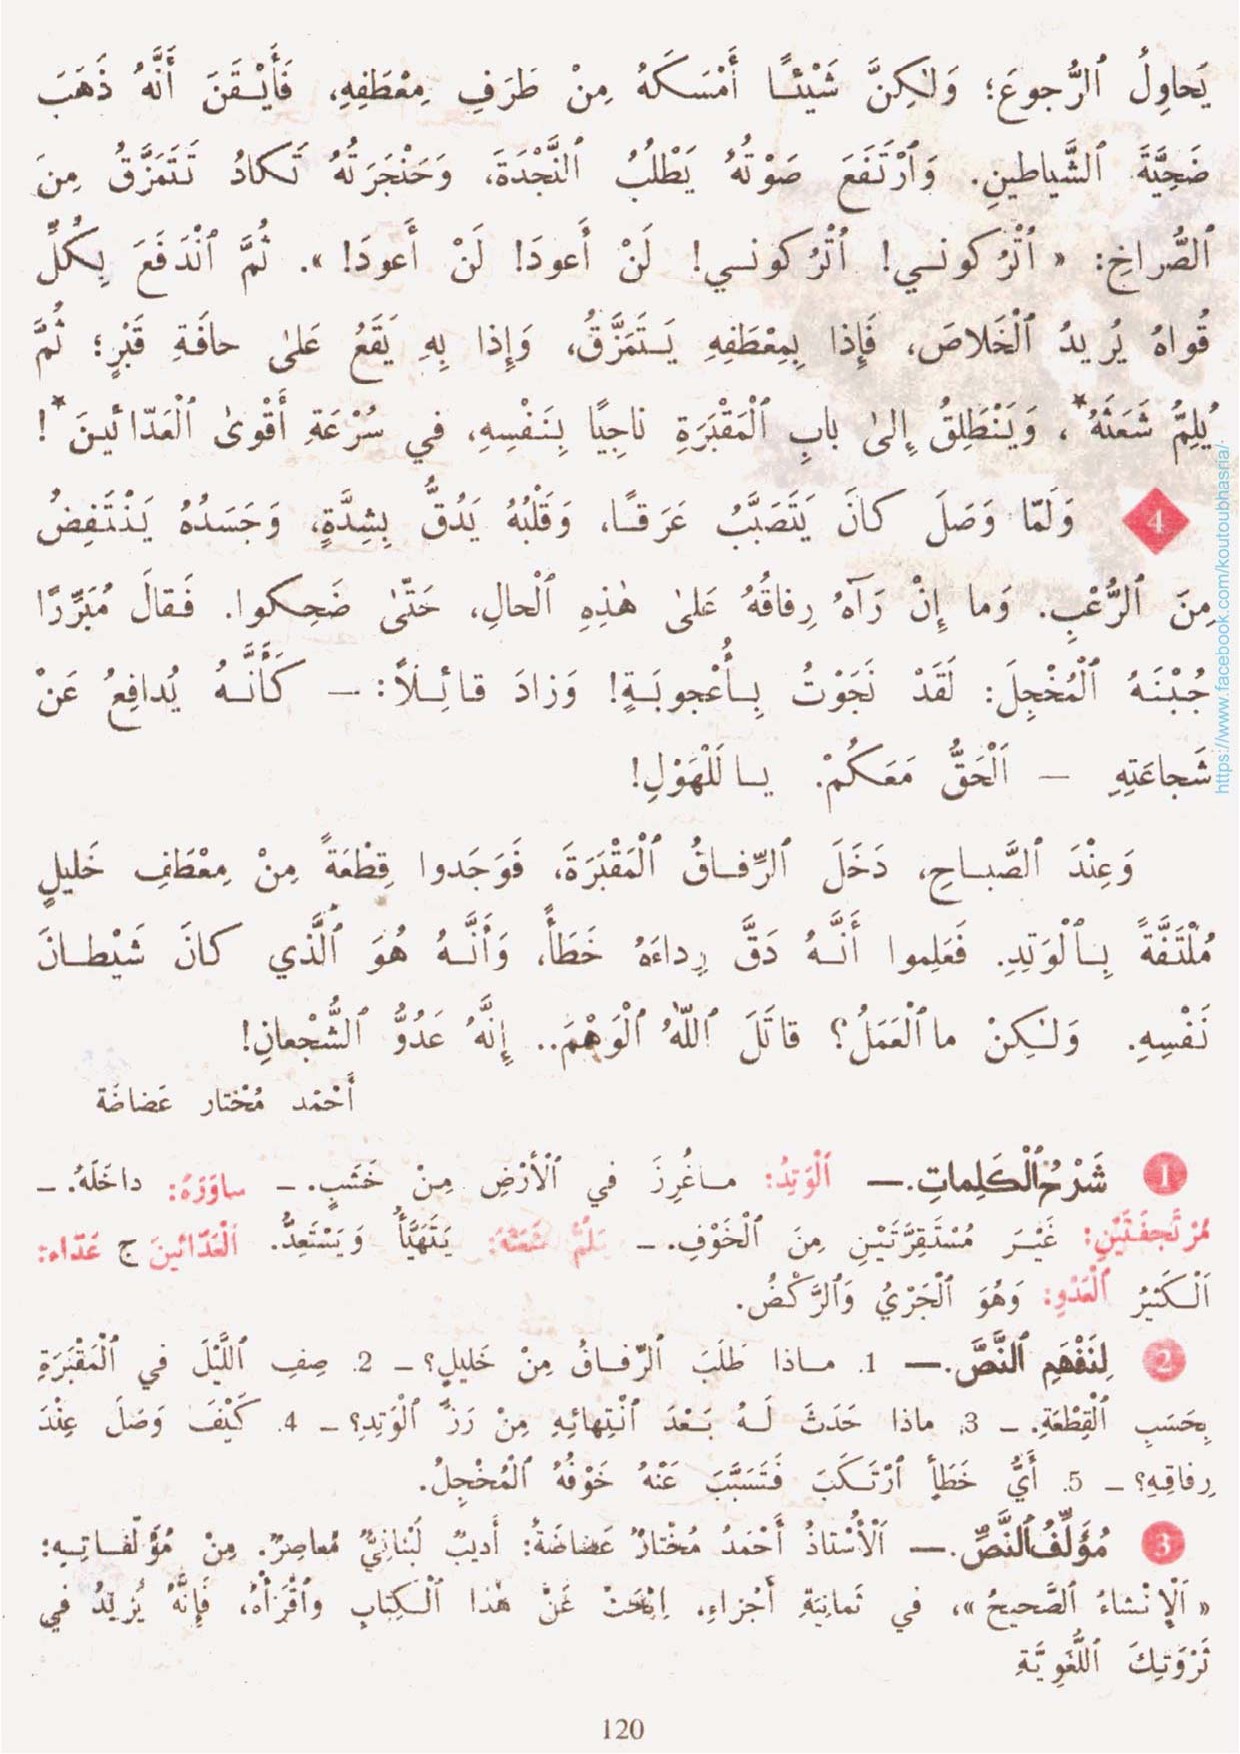 يُحاوِلُ ٱلرُّجوعَ؛ وَلٰكِنَّ شَيْئًا أَمْسَكَهُ مِنْ طَرَفِ مِعْطَفِهِ، فَأَيْقَنَ أَنَّهُ ذَهَبَ
ضَحِيَّةَ ٱلشَّياطينِ. وَٱرْتَفَعَ صَوْتُهُ يَطْلُبُ ٱلنَّجْدَةَ، وَحَنْجَرَتُهُ تَكادُ تَتَمَزَّقُ مِنَ
ٱلصُّراخِ: « ٱتْرُكوني! ٱتْرُكوني! لَنْ أَعودَ! لَنْ أَعودَ! ». ثُمَّ ٱنْدَفَعَ بِكُلِّ
قُواهُ يُريدُ ٱلْخَلاصَ، فَإِذا بِمِعْطَفِهِ يَتَمَزَّقُ، وَإِذا بِهِ يَقَعُ عَلىٰ حافَةِ قَبْرٍ؛ ثُمَّ
يُلِمُّ شَعَثَهُ*، وَيَنْطَلِقُ إِلىٰ بابِ ٱلْمَقْبَرَةِ ناجِيًا بِنَفْسِهِ، في سُرْعَةِ أَقْوىٰ ٱلْعَدّائينَ*!
4 وَلَمّا وَصَلَ كانَ يَتَصَبَّبُ عَرَقًا، وَقَلْبُهُ يَدُقُّ بِشِدَّةٍ، وَجَسَدُهُ يَنْتَفِضُ
مِنَ ٱلرُّعْبِ. وَما إِنْ رَآهُ رِفاقُهُ عَلىٰ هٰذِهِ ٱلْحالِ، حَتّىٰ ضَحِكوا. فَقالَ مُبَرِّرًا
جُبْنَهُ ٱلْمُخْجِلَ: لَقَدْ نَجَوْتُ بِأُعْجوبَةٍ! وَزادَ قائِلاً: — كَأَنَّهُ يُدافِعُ عَنْ
شَجاعَتِهِ — اَلْحَقُّ مَعَكُمْ. يا لَلْهَوْلِ!
وَعِنْدَ ٱلصَّباحِ، دَخَلَ ٱلرِّفاقُ ٱلْمَقْبَرَةَ، فَوَجَدوا قِطْعَةً مِنْ مِعْطَفِ خَليلٍ
مُلْتَفَّةً بِٱلْوَتِدِ. فَعَلِموا أَنَّهُ دَقَّ رِداءَهُ خَطَأً، وَأَنَّهُ هُوَ ٱلَّذي كانَ شَيْطانَ
نَفْسِهِ. وَلٰكِنْ ما ٱلْعَمَلُ؟ قاتَلَ ٱللّٰهُ ٱلْوَهْمَ.. إِنَّهُ عَدُوُّ ٱلشُّجْعانِ!
أَحْمَد مُخْتار عَضاضَة
1 شَرْحُ ٱلْكَلِماتِ.— اَلْوَتِدُ: ما غُرِزَ في ٱلْأَرْضِ مِنْ خَشَبٍ. — ساوَرَهُ: داخَلَهُ. —
مُرْتَجِفَتَيْنِ: غَيْرَ مُسْتَقِرَّتَيْنِ مِنَ ٱلْخَوْفِ. — يَلُمُّ شَعَثَهُ: يَتَهَيَّأُ وَيَسْتَعِدُّ. اَلْعَدّائينَ ج عَدّاء:
اَلْكَثيرُ ٱلْعَدْوِ: وَهُوَ ٱلْجَرْيُ وَٱلرَّكْضُ.
2 لِنَفْهَمِ ٱلنَّصَّ.— 1. ماذا طَلَبَ ٱلرِّفاقُ مِنْ خَليلٍ؟ — 2. صِفِ ٱللَّيْلَ في ٱلْمَقْبَرَةِ
بِحَسَبِ ٱلْقِطْعَةِ. — 3. ماذا حَدَثَ لَهُ بَعْدَ ٱنْتِهائِهِ مِنْ رَزِّ ٱلْوَتِدِ؟ — 4. كَيْفَ وَصَلَ عِنْدَ
رِفاقِهِ؟ — 5. أَيُّ خَطَأٍ ٱرْتَكَبَ فَتَسَبَّبَ عَنْهُ خَوْفُهُ ٱلْمُخْجِلُ.
3 مُؤَلِّفُ ٱلنَّصِّ.— اَلْأُسْتاذُ أَحْمَدُ مُخْتارُ عَضاضَةُ: أَديبٌ لُبْنانِيٌّ مُعاصِرٌ. مِنْ مُؤَلَّفاتِهِ:
« اَلْإِنْشاءُ ٱلصَّحيحُ »، في ثَمانِيَةِ أَجْزاءِ. اِبْحَثْ عَنْ هٰذا ٱلْكِتابِ وٱقْرَأْهُ، فَإِنَّهُ يُزيدُ في
ثَرْوَتِكَ ٱللُّغَوِيَّةِ
120
https://www.facebook.com/koutoubhasria/